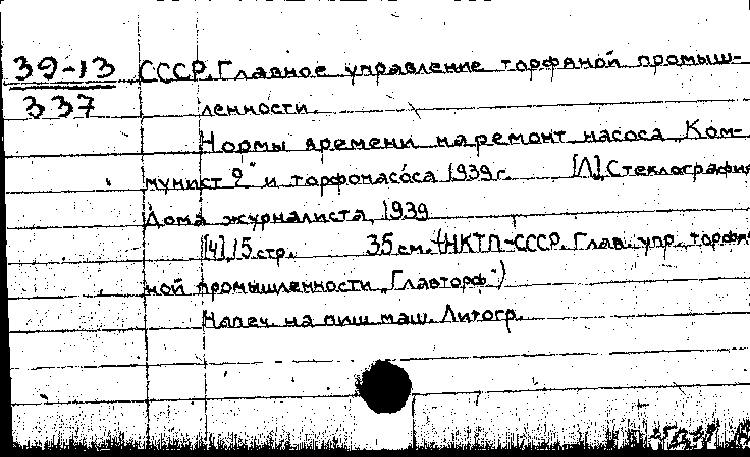 39-13
337
СССР. Главное управление торфяной промыш-
ленности.
Нормы времени на ремонт насоса „Ком-
мунист 2" и торфонасоса 1939 г. [Л], Стеклография
Дома журналиста, 1939
[4], 15 стр. 35 см. (НКТП-СССР. Глав. упр. торфя-
ной промышленности „Главторф")
Напеч. на пиш. маш. Литогр.